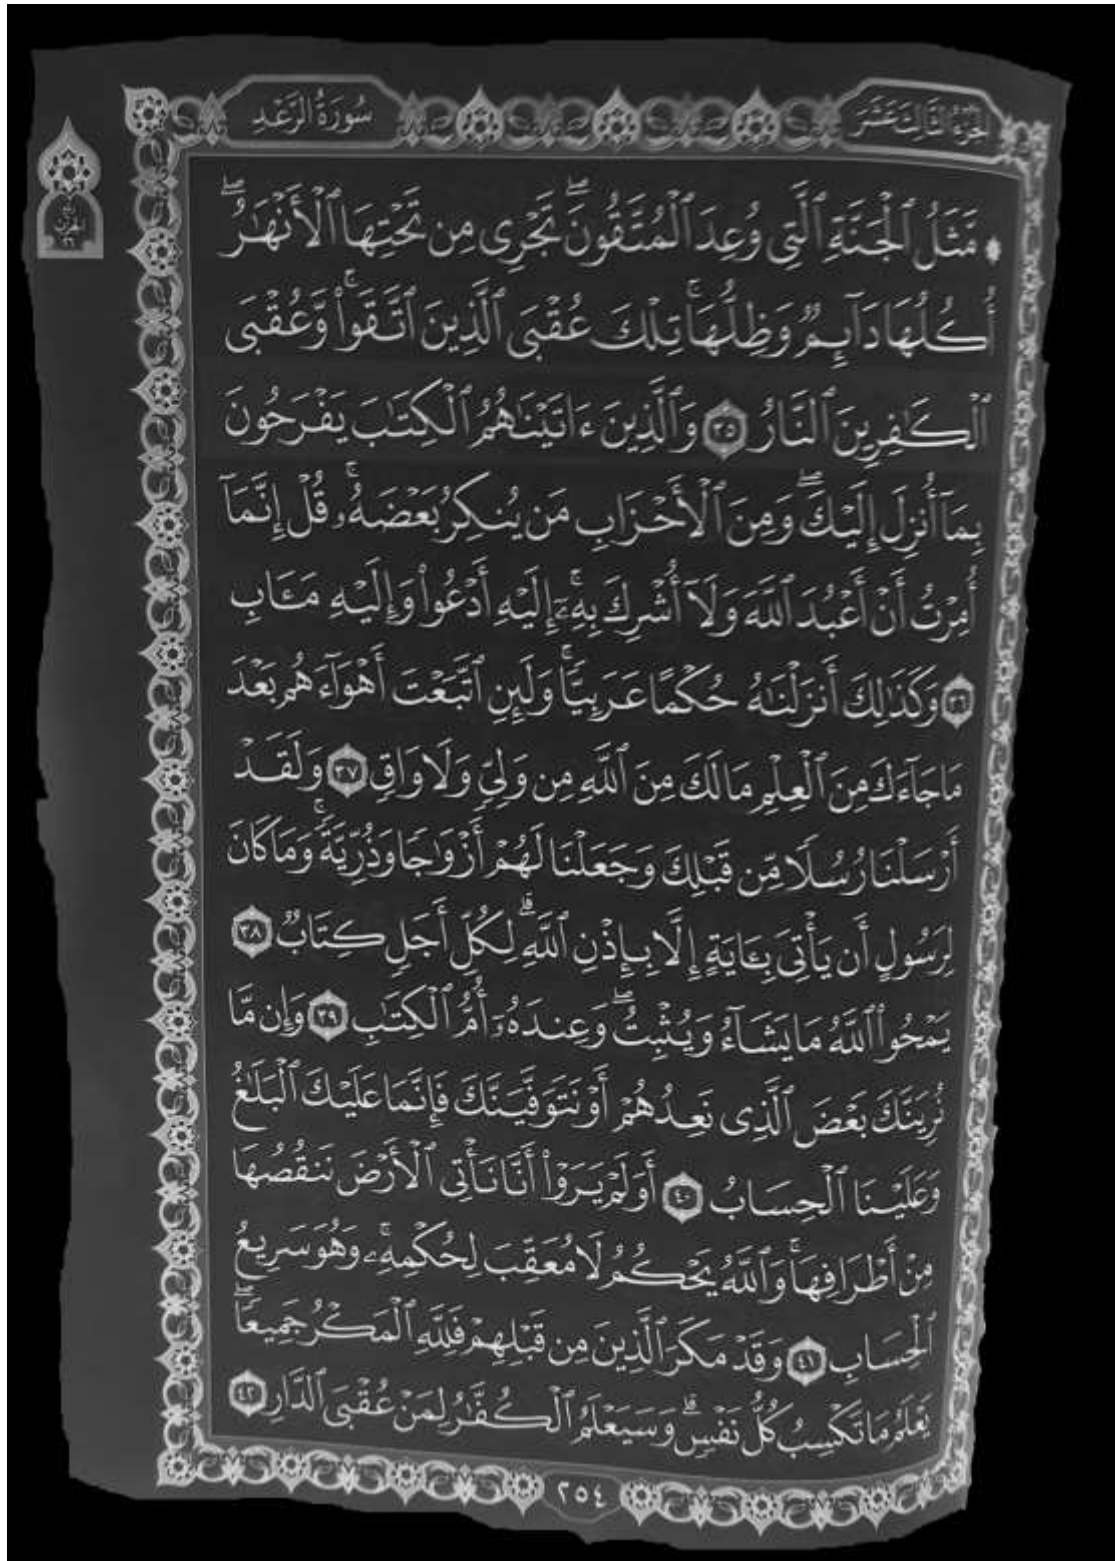 الجزء الثالث عشر
سُورَةُ الرَّعْدِ
۞ مَّثَلُ ٱلْجَنَّةِ ٱلَّتِى وُعِدَ ٱلْمُتَّقُونَۖ تَجْرِى مِن تَحْتِهَا ٱلْأَنْهَٰرُۖ
أُكُلُهَا دَآئِمٌ وَظِلُّهَاۚ تِلْكَ عُقْبَى ٱلَّذِينَ ٱتَّقَوا۟ۚ وَّعُقْبَى
ٱلْكَٰفِرِينَ ٱلنَّارُ ٣٥ وَٱلَّذِينَ ءَاتَيْنَٰهُمُ ٱلْكِتَٰبَ يَفْرَحُونَ
بِمَآ أُنزِلَ إِلَيْكَۖ وَمِنَ ٱلْأَحْزَابِ مَن يُنكِرُ بَعْضَهُۥۚ قُلْ إِنَّمَآ
أُمِرْتُ أَنْ أَعْبُدَ ٱللَّهَ وَلَآ أُشْرِكَ بِهِۦٓۚ إِلَيْهِ أَدْعُوا۟ وَإِلَيْهِ مَـَٔابِ
٣٦ وَكَذَٰلِكَ أَنزَلْنَٰهُ حُكْمًا عَرَبِيًّاۚ وَلَئِنِ ٱتَّبَعْتَ أَهْوَآءَهُم بَعْدَ
مَا جَآءَكَ مِنَ ٱلْعِلْمِ مَا لَكَ مِنَ ٱللَّهِ مِن وَلِىٍّ وَلَا وَاقٍ ٣٧ وَلَقَدْ
أَرْسَلْنَا رُسُلًا مِّن قَبْلِكَ وَجَعَلْنَا لَهُمْ أَزْوَٰجًا وَذُرِّيَّةًۚ وَمَا كَانَ
لِرَسُولٍ أَن يَأْتِىَ بِـَٔايَةٍ إِلَّا بِإِذْنِ ٱللَّهِۗ لِكُلِّ أَجَلٍ كِتَابٌ ٣٨
يَمْحُوا۟ ٱللَّهُ مَا يَشَآءُ وَيُثْبِتُۖ وَعِندَهُۥٓ أُمُّ ٱلْكِتَٰبِ ٣٩ وَإِن مَّا
نُرِيَنَّكَ بَعْضَ ٱلَّذِى نَعِدُهُمْ أَوْ نَتَوَفَّيَنَّكَ فَإِنَّمَا عَلَيْكَ ٱلْبَلَٰغُ
وَعَلَيْنَا ٱلْحِسَابُ ٤٠ أَوَلَمْ يَرَوْا۟ أَنَّا نَأْتِى ٱلْأَرْضَ نَنقُصُهَا
مِنْ أَطْرَافِهَاۚ وَٱللَّهُ يَحْكُمُ لَا مُعَقِّبَ لِحُكْمِهِۦۚ وَهُوَ سَرِيعُ
ٱلْحِسَابِ ٤١ وَقَدْ مَكَرَ ٱلَّذِينَ مِن قَبْلِهِمْ فَلِلَّهِ ٱلْمَكْرُ جَمِيعًاۖ
يَعْلَمُ مَا تَكْسِبُ كُلُّ نَفْسٍۗ وَسَيَعْلَمُ ٱلْكُفَّٰرُ لِمَنْ عُقْبَى ٱلدَّارِ ٤٢
٢٥٤